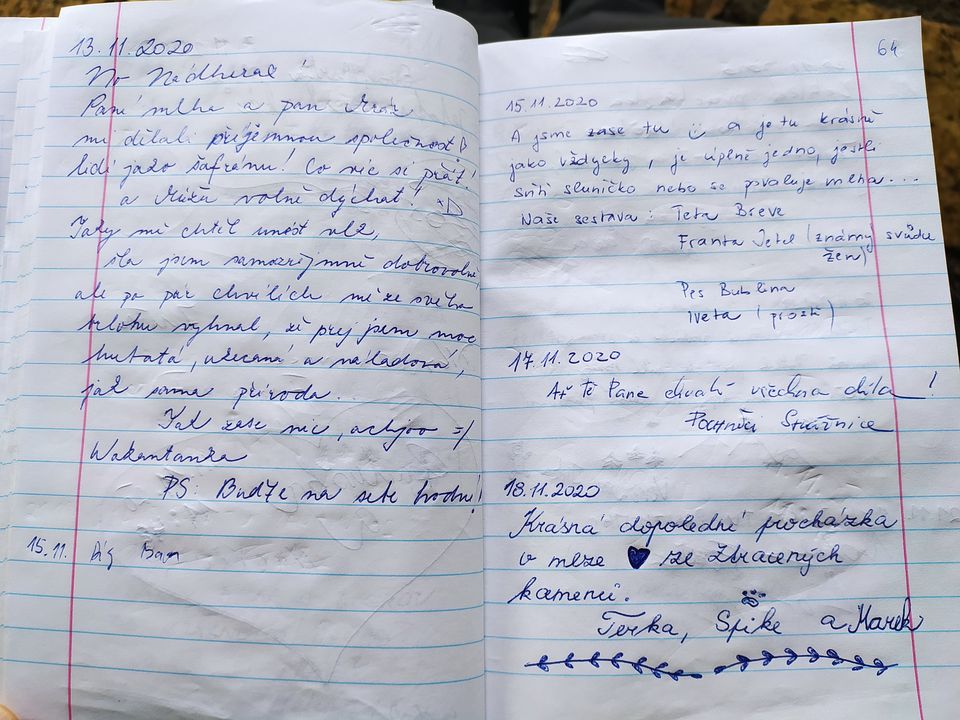 13.11.2020
No Nádhera!
Paní mlha a pan Mráz
mi dělali příjemnou společnost
lidí jako šafránu! Co víc si přát!
a může volně dýchat! xD
Taky mě chtěl unést vlk,
šla jsem samozřejmně dobrovolně
ale po pár chvilích mě ze svého
brlohu vyhnal, že prej jsem moc
hubatá, ukecaná a náladová,
jak sama příroda.
Tak zase nic, achjoo =/
Wakantanka
PS: Buďte na sebe hodní!
15.11. Ban
64
15.11.2020
A jsme zase tu a je tu krásně
jako vždycky, je úplně jedno, jestli
svítí sluníčko nebo se povaluje mlha...
Naše sestava: Teta Breve
Franta Jetel (známý svůdce
žen)
Pes Bublina
Iveta (prostě)
17.11.2020
Ať Tě Pane chválí všechna díla!
Poutníci Strážnice
18.11.2020
Krásná dopolední procházka
v mlze ♥ ze Ztracených
kamenů.
Terka, Spike a Marek